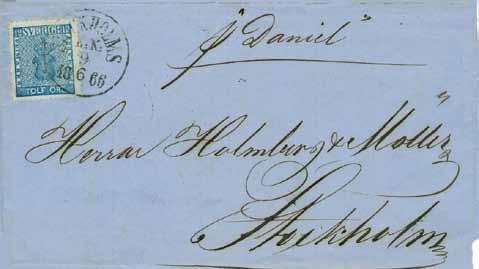 SVERIGE
TOLF ÖRE
9
10 6 66
p "Daniel"
Herrar Holmberg & Möller
Stockholm